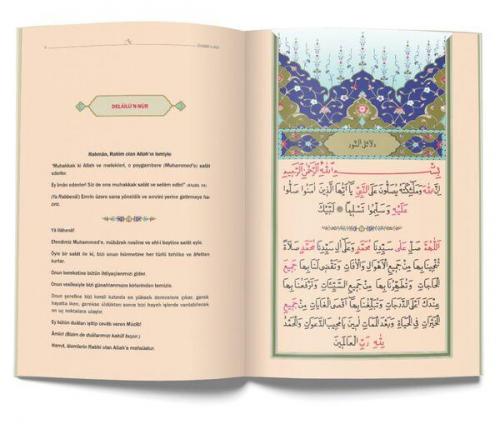 DELÂİLÜ'N-NÛR
Rahmân, Rahîm olan Allah'ın ismiyle
"Muhakkak ki Allah ve melekleri, o peygambere (Muhammed'e) salât
ederler.
Ey îmân edenler! Siz de ona muhakkak salât ve selâm edin!"
(Ya Rabbenâ!) Emrin üzere sana yöneldik ve emrini yerine getirmeye ha-
zırız.
Yâ İlâhenâ!
Efendimiz Muhammed'e, mübârek nesline ve ehl-i beytine salât eyle.
Öyle bir salât ile ki, bizi onun hürmetine her türlü tehlike ve âfetten
kurtar.
Onun bereketine bütün ihtiyaçlarımızı gider.
Onun vesilesiyle bizi günahlarımızın kirlerinden temizle.
Onun şerefine bizi kendi katında en yüksek derecelere çıkar, gerek
hayatta iken, gerekse öldükten sonra bizi hayırlı işlerde varılabilecek
en uç noktalara ulaştır.
Ey bütün duâları işitip cevâb veren Mücîb!
Âmîn! (Bizim de duâlarımızı kabûl buyur.)
Hamd, âlemlerin Rabbi olan Allah'a mahsûstur.
دلائل النور
بِسْمِ اللّٰهِ الرَّحْمٰنِ الرَّحِيمِ
اِنَّ اللّٰهَ وَمَلٰئِكَتَهُ يُصَلُّونَ عَلَى النَّبِيِّ يَا اَيُّهَا الَّذِينَ اٰمَنُوا صَلُّوا
عَلَيْهِ وَسَلِّمُوا تَسْلِيمًا لَبَّيْكَ
اَللّٰهُمَّ صَلِّ عَلٰى سَيِّدِنَا مُحَمَّدٍ وَعَلٰى اٰلِ سَيِّدِنَا مُحَمَّدٍ صَلَاةً
تُنْجِينَا بِهَا مِنْ جَمِيعِ الْاَهْوَالِ وَالْاٰفَاتِ وَتَقْضِى لَنَا بِهَا جَمِيعَ
الْحَاجَاتِ وَتُطَهِّرُنَا بِهَا مِنْ جَمِيعِ السَّيِّئَاتِ وَتَرْفَعُنَا بِهَا
عِنْدَكَ اَعْلَى الدَّرَجَاتِ وَتُبَلِّغُنَا بِهَا اَقْصَى الْغَايَاتِ مِنْ جَمِيعِ
الْخَيْرَاتِ فِى الْحَيَاةِ وَبَعْدَ الْمَمَاتِ اٰمِينَ يَا مُجِيبَ الدَّعَوَاتِ وَالْحَمْدُ
لِلّٰهِ رَبِّ الْعَالَمِينَ